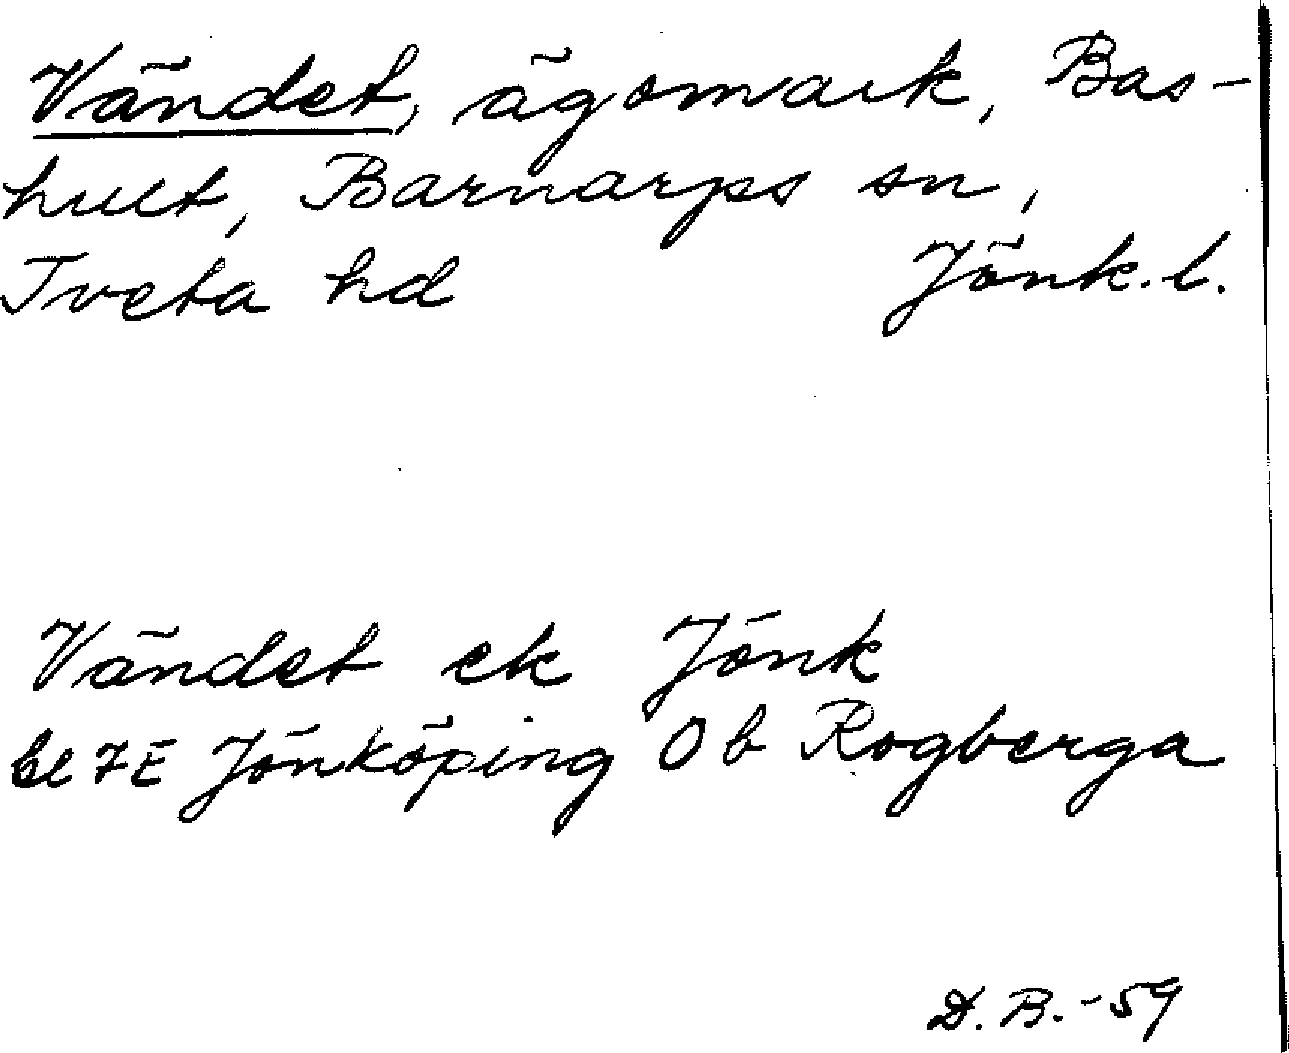 Vändet, ägomark, Bas-
hult, Barnarps sn,
Tveta hd Jönk.l.
Vändet ek Jönk
bl 7E Jönköping Ob Rogberga
D.B.-59